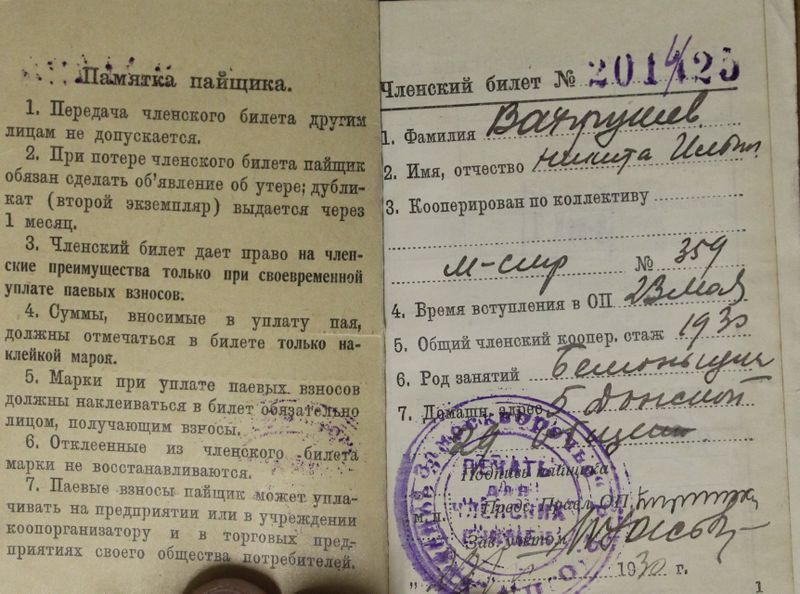 Памятка пайщика.
1. Передача членского билета другим
лицам не допускается.
2. При потере членского билета пайщик
обязан сделать об'явление об утере; дубли-
кат (второй экземпляр) выдается через
1 месяц.
3. Членский билет дает право на член-
ские преимущества только при своевременной
уплате паевых взносов.
4. Суммы, вносимые в уплату пая,
должны отмечаться в билете только на-
клейкой марок.
5. Марки при уплате паевых взносов
должны наклеиваться в билет обязательно
лицом, получающим взносы.
6. Отклеенные из членского билета
марки не восстанавливаются.
7. Паевые взносы пайщик может упла-
чивать на предприятии или в учреждении
кооперганизатору и в торговых пред-
приятиях своего общества потребителей.
Членский билет №
1. Фамилия Вахрушев
2. Имя, отчество Никита Ильич
3. Кооперирован по коллективу
№ 359
4. Время вступления в ОП 23 мая
5. Общий членский коопер. стаж 1930
6. Род занятий Бетонщик
7. Домашн. адрес 5 Донской
29
Подпись пайщика
М.П. Пред. Правл. ОП
Зав. учетом
1930 г.
1